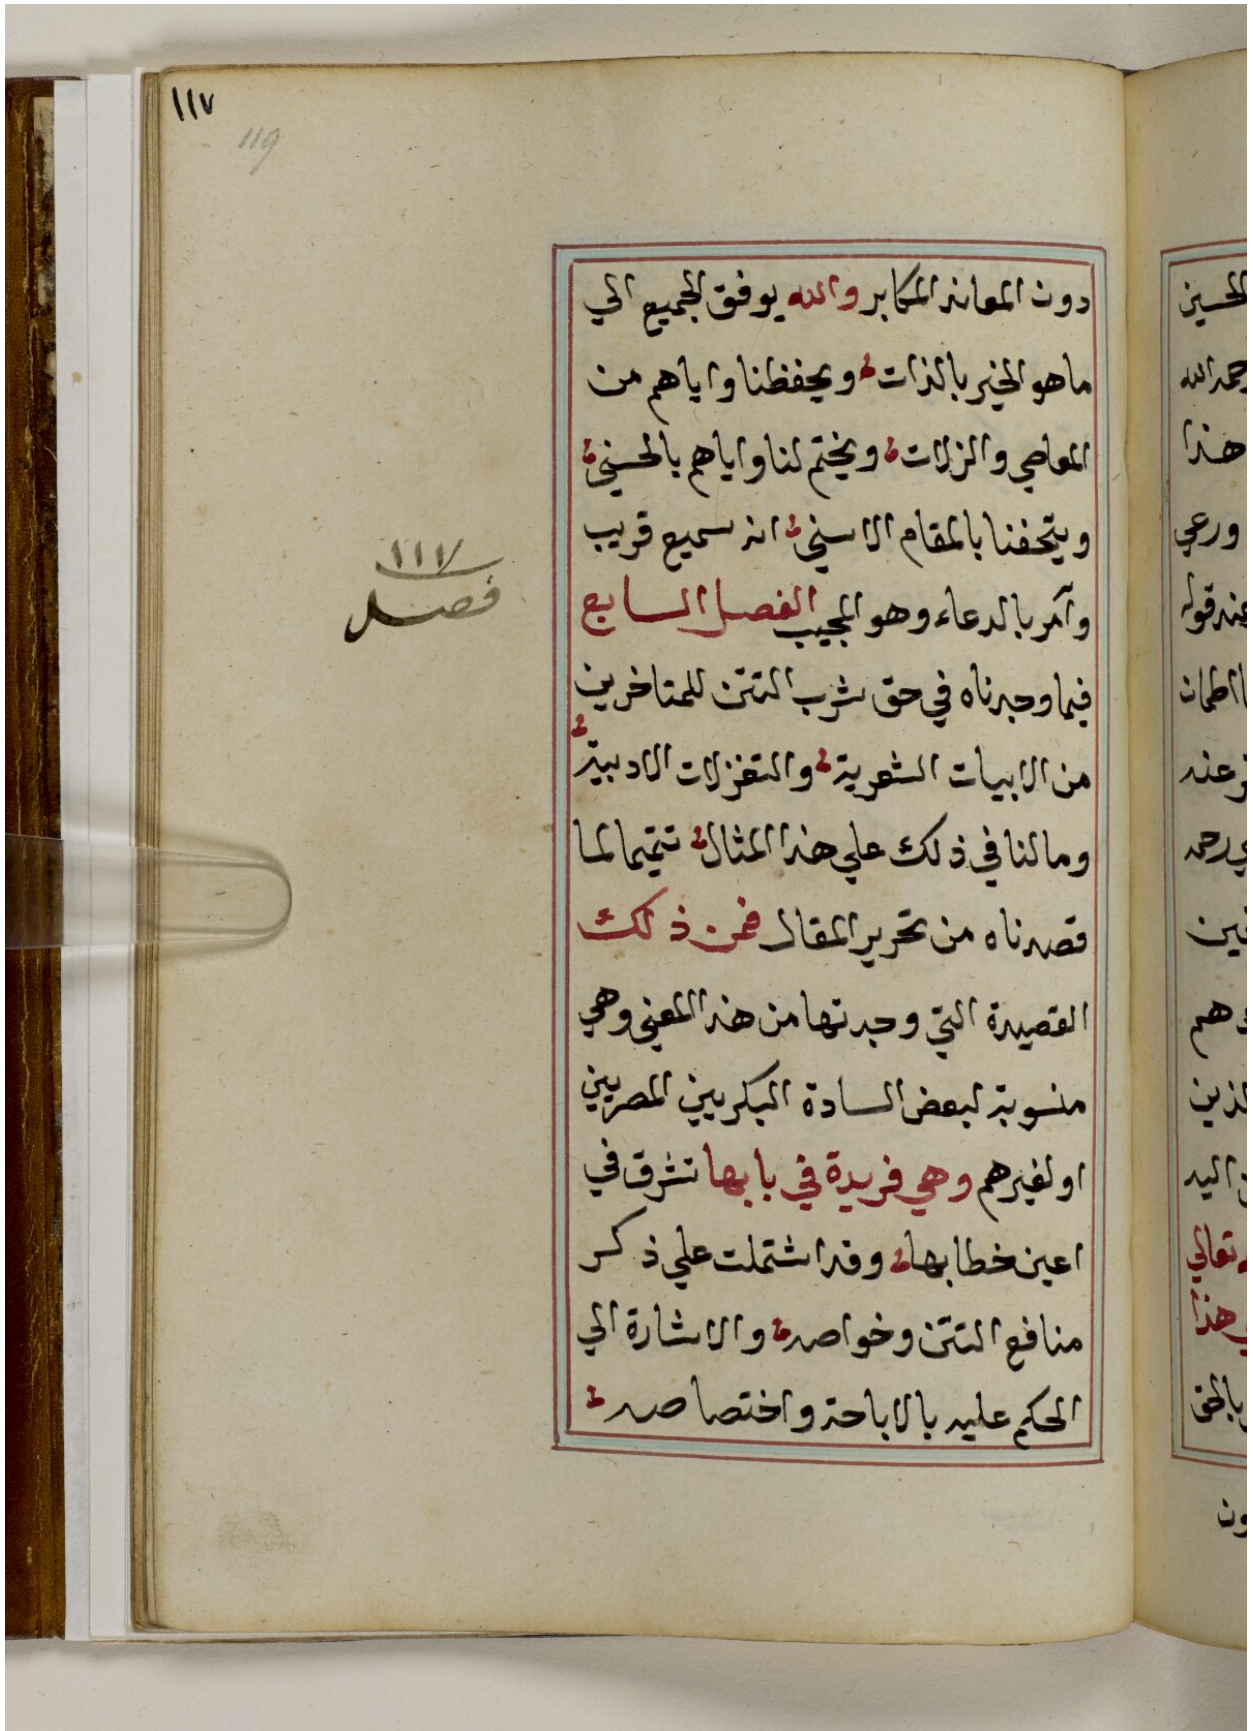 ١١٧
119
دون المعاند المكابر والله يوفق الجميع الي
ما هو الخير بالذات ويحفظنا واياهم من
المعاصي والزلات ويختم لنا واياهم بالحسني
ويتحفنا بالمقام الاسني انه سميع قريب
وآمر بالدعاء وهو المجيب الفصل السابع
فيما وجدناه في حق شرب التتن للمتاخرين
من الابيات الشعرية والتغزلات الادبية
وما لنا في ذلك علي هذا المثال تتميما لما
قصدناه من تحرير المقال فمن ذلك
القصيدة التي وجدتها من هذا المعني وهي
منسوبة لبعض السادة البكريين المصريين
او لغيرهم وهي فريدة في بابها تشرق في
اعين خطابها وقد اشتملت علي ذكر
منافع التتن وخواصه والاشارة الي
الحكم عليه بالاباحة واختصاصه
١١٧
فصل
الحسين
رحمه الله
هذا
ورعي
عند قوله
اطمان
عنه
رحمه
هم
الذين
اليه
تعالي
هذا
بالحق